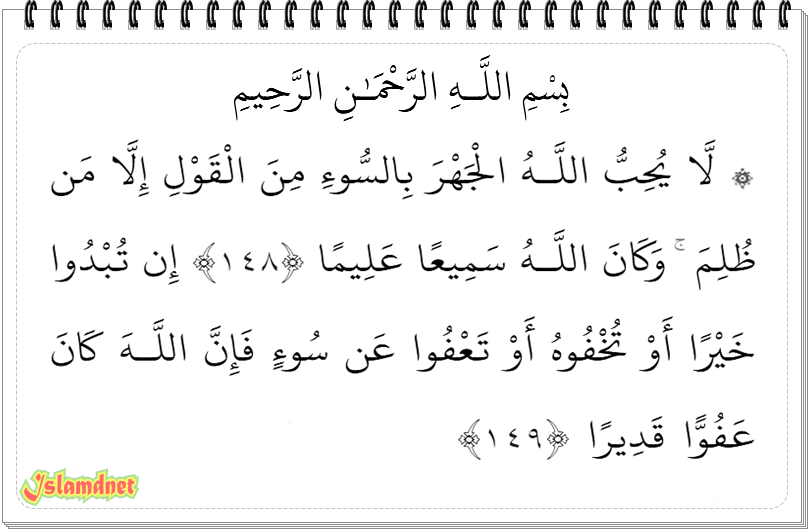 بِسْمِ اللَّـهِ الرَّحْمَـٰنِ الرَّحِيمِ
۞ لَّا يُحِبُّ اللَّـهُ الْجَهْرَ بِالسُّوءِ مِنَ الْقَوْلِ إِلَّا مَن
ظُلِمَ ۚ وَكَانَ اللَّـهُ سَمِيعًا عَلِيمًا ﴿١٤٨﴾ إِن تُبْدُوا
خَيْرًا أَوْ تُخْفُوهُ أَوْ تَعْفُوا عَن سُوءٍ فَإِنَّ اللَّـهَ كَانَ
عَفُوًّا قَدِيرًا ﴿١٤٩﴾
Islamdnet